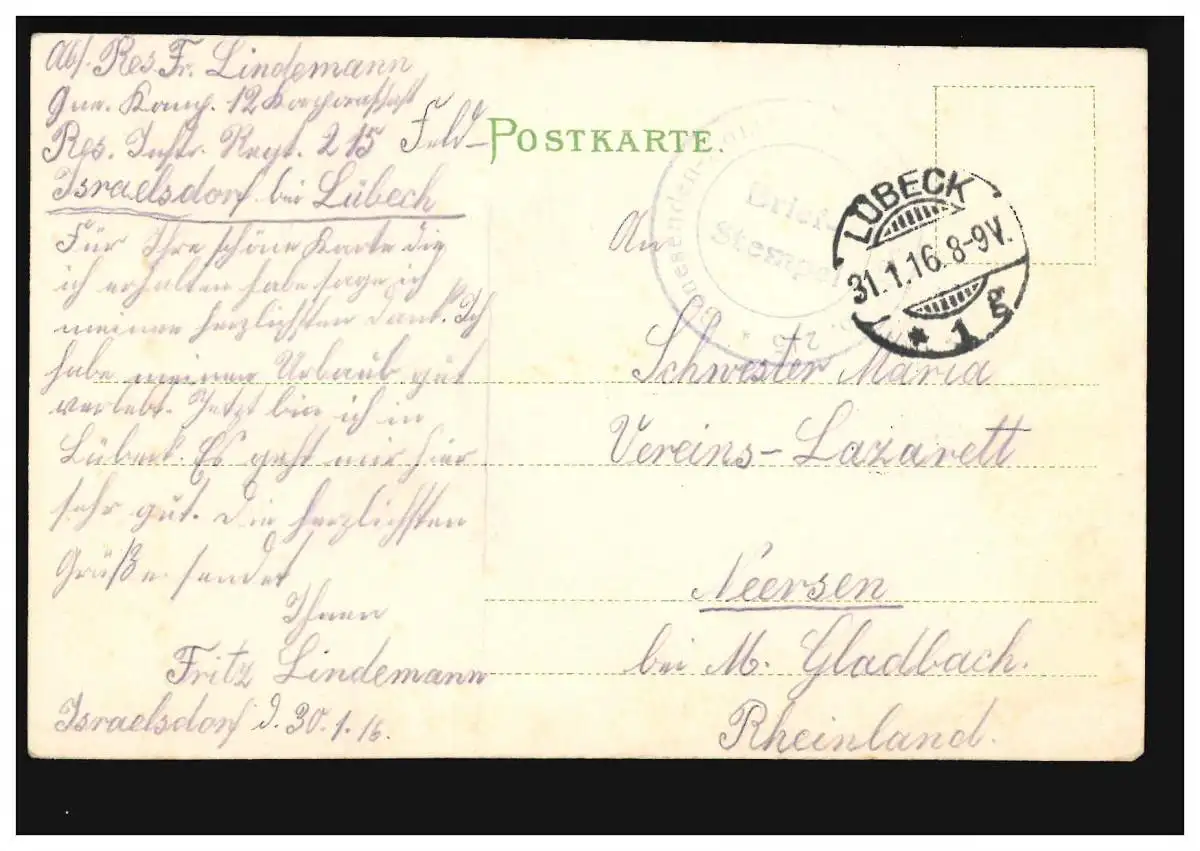 Abs. Res. Fr. Lindemann
Gne. Komp. 12 Korporalschaft
Res. Inftr. Regt. 215
Israelsdorf bei Lübeck
Feld-
POSTKARTE.
Für Ihre schöne Karte die
ich erhalten habe sage ich
meinen herzlichsten Dank. Ich
habe meinen Urlaub gut
verlebt. Jetzt bin ich in
Lübeck. Es geht mir hier
sehr gut. Die herzlichsten
Grüße sendet
Ihnen
Fritz Lindemann
Israelsdorf d. 30.1.16.
Genesenden-
Briefstempel
LÜBECK
31.1.16. 8-9V.
* 1 g
An
Schwester Maria
Vereins-Lazarett
Neersen
bei M. Gladbach.
Rheinland.